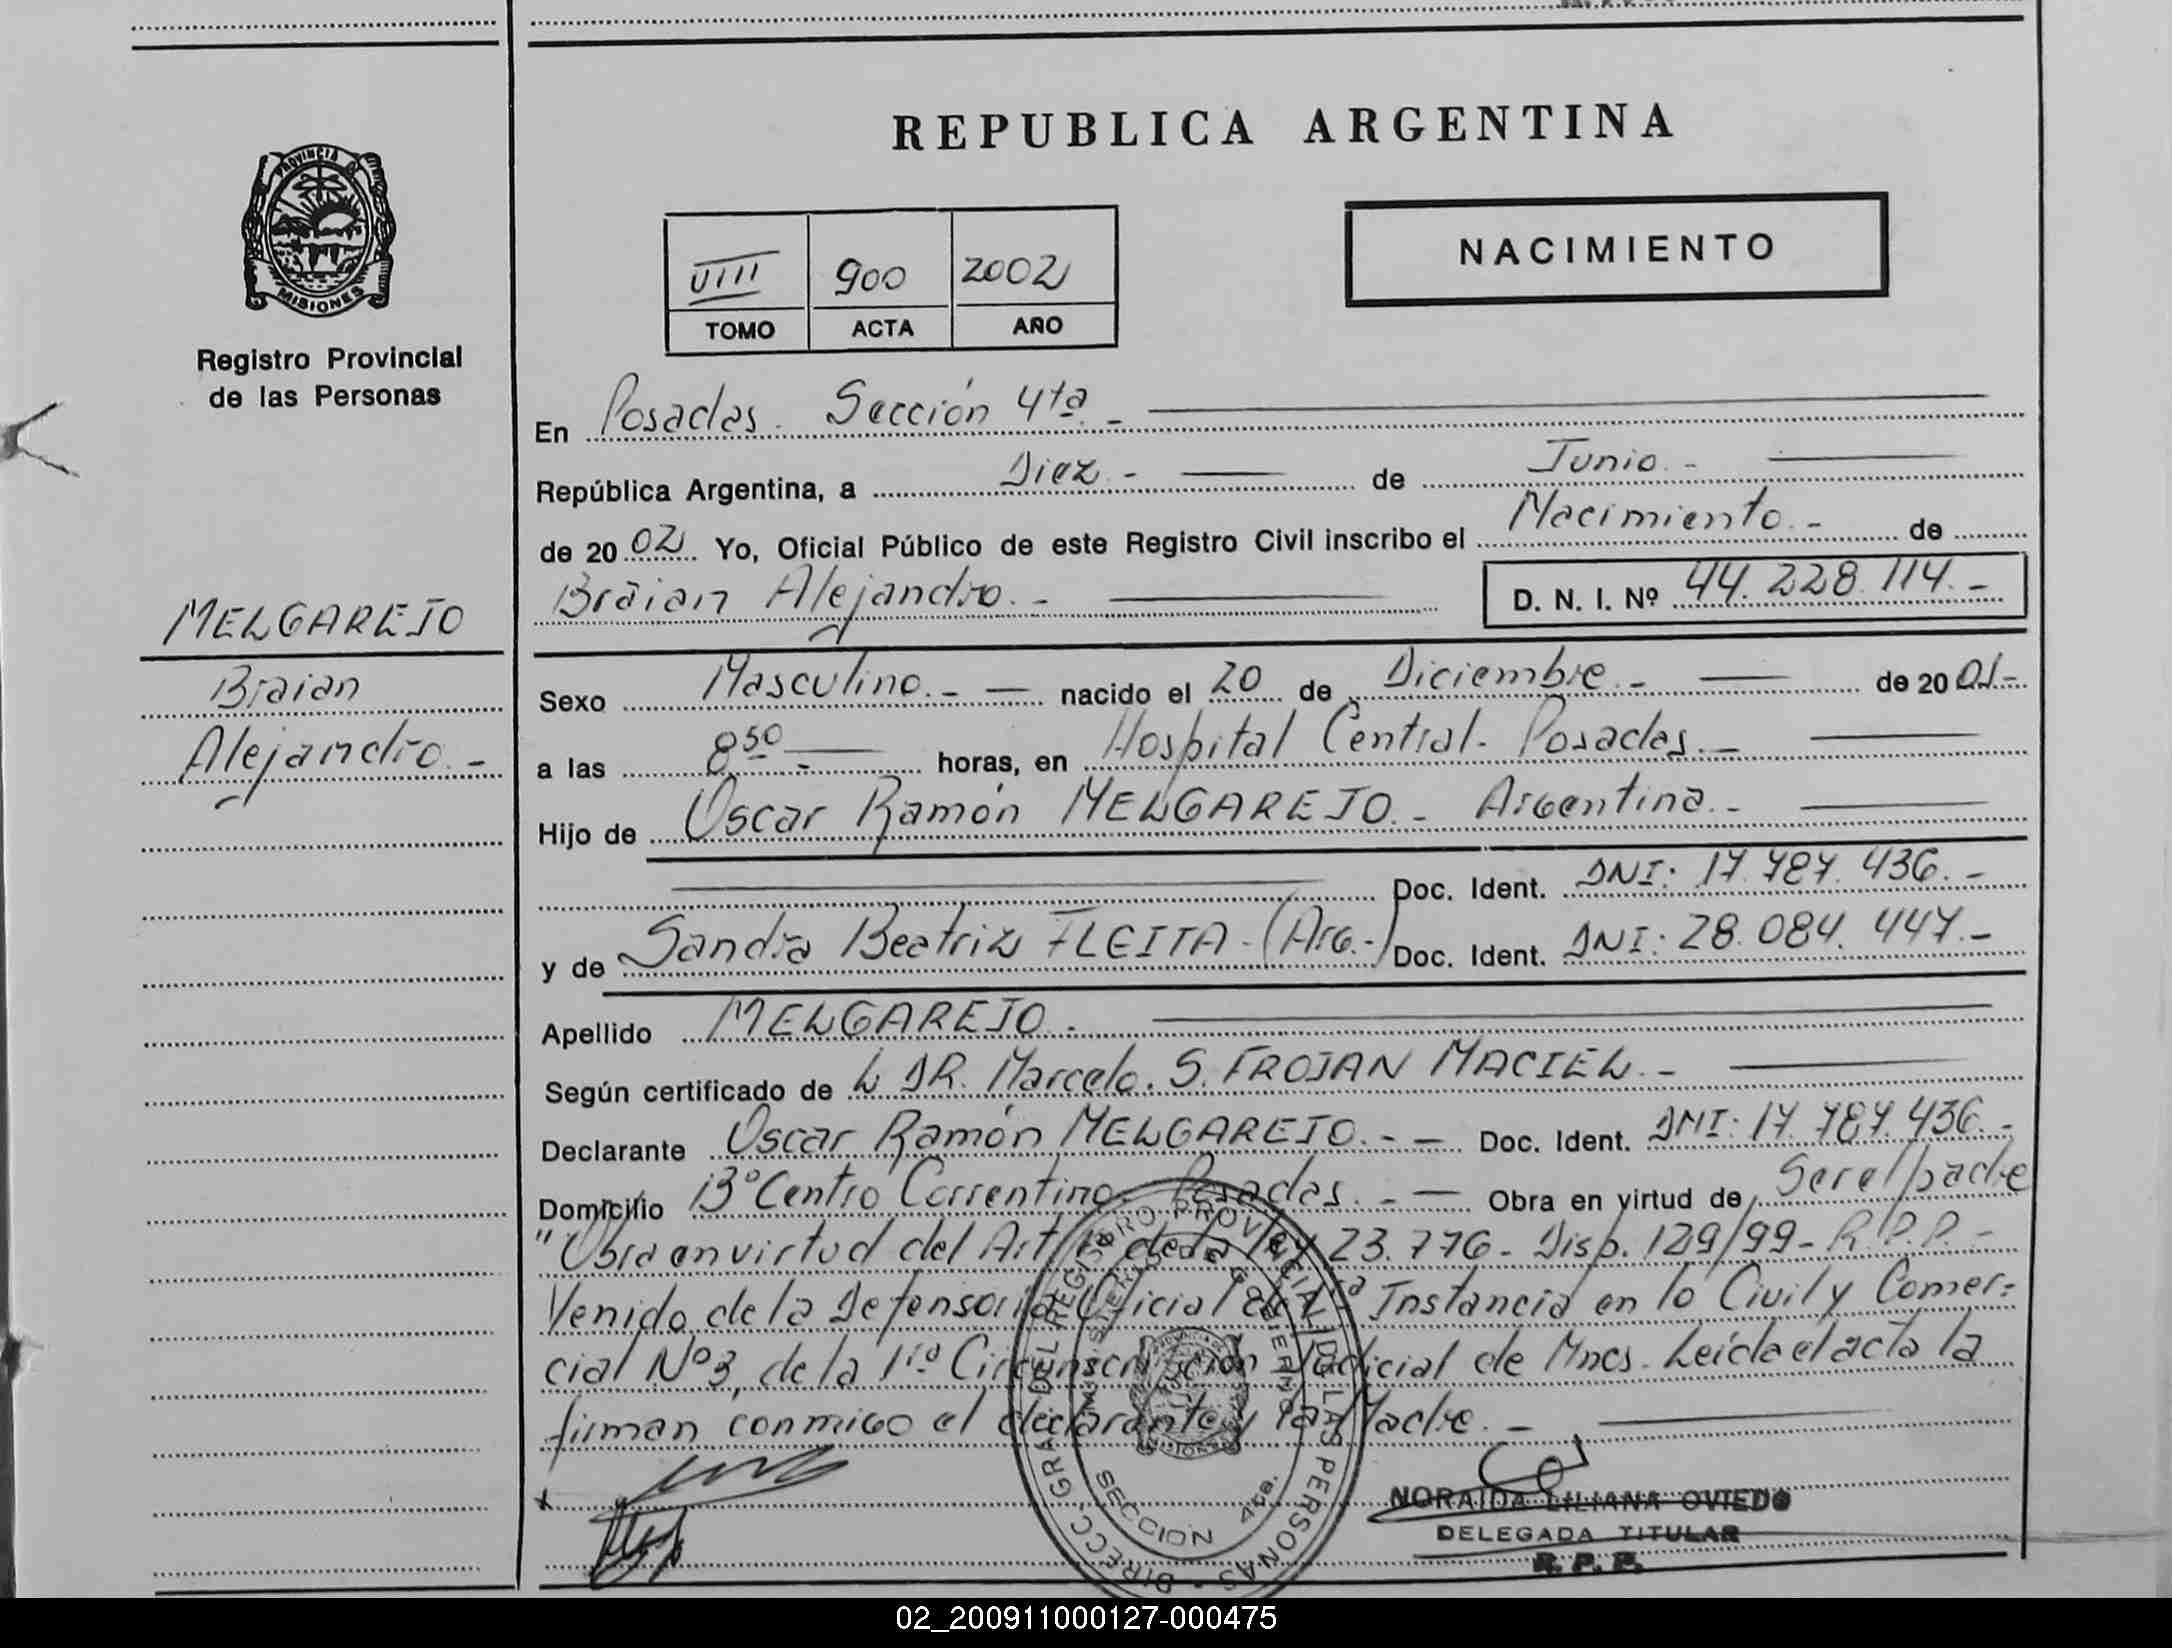 REPUBLICA ARGENTINA
PROVINCIA DE
MISIONES
Registro Provincial
de las Personas
NACIMIENTO
VIII 900 2002
TOMO ACTA AÑO
En Posadas. Sección 4ta.-
República Argentina, a Diez.- de Junio.-
de 20 02 Yo, Oficial Público de este Registro Civil inscribo el Nacimiento.- de
Braian Alejandro.- D. N. I. Nº 44.228.114.-
MELGAREJO
Braian
Alejandro.-
Sexo Masculino.- nacido el 20 de Diciembre.- de 20 01.-
a las 8 50 horas, en Hospital Central- Posadas.-
Hijo de Oscar Ramón MELGAREJO.- Argentina.-
Doc. Ident. DNI: 17.787.436.-
y de Sandra Beatriz FLEITA-(Arg.-) Doc. Ident. DNI: 28.084.447.-
Apellido MELGAREJO.
Según certificado de L DR. Marcelo. S. FROJAN MACIEL.-
Declarante Oscar Ramón MELGAREJO.- Doc. Ident. DNI: 17.787.436.-
Domicilio Bº Centro Correntino. Posadas.- Obra en virtud de Ser el padre
"Obra en virtud del Art de la Ley 23.776- Disp. 129/99- R.P.P.-
Venido de la Defensoria Oficial de 1ª Instancia en lo Civil y Comer-
cial Nº3, de la 1ra Circunscripción Judicial de Mnes. Leída el acta la
firman conmigo el declarante y la Madre.-
DIRECC. GRAL. DEL REGISTRO PROVINCIAL DE LAS PERSONAS
MINISTERIO DE GOBIERNO
SECCION 4ta.
NORAIDA LILIANA OVIEDO
DELEGADA TITULAR
R. P. P.
02_200911000127-000475